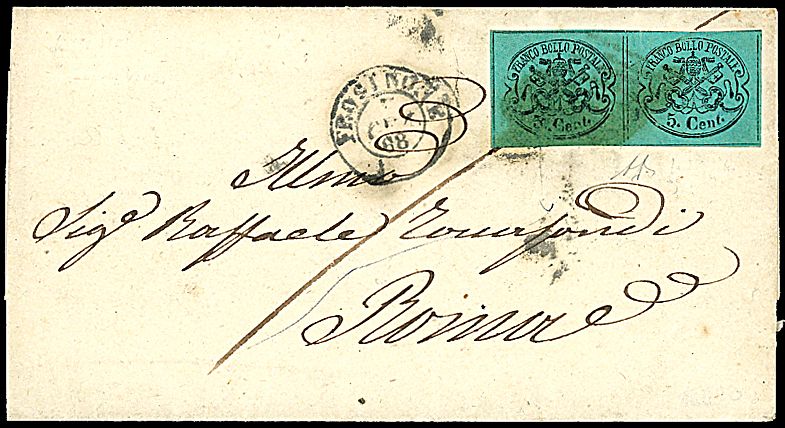 FRANCO BOLLO POSTALE
5 Cent.
FRANCO BOLLO POSTALE
5. Cent.
FROSINONE
68
Illmo
Sig.e Raffaele
Roma